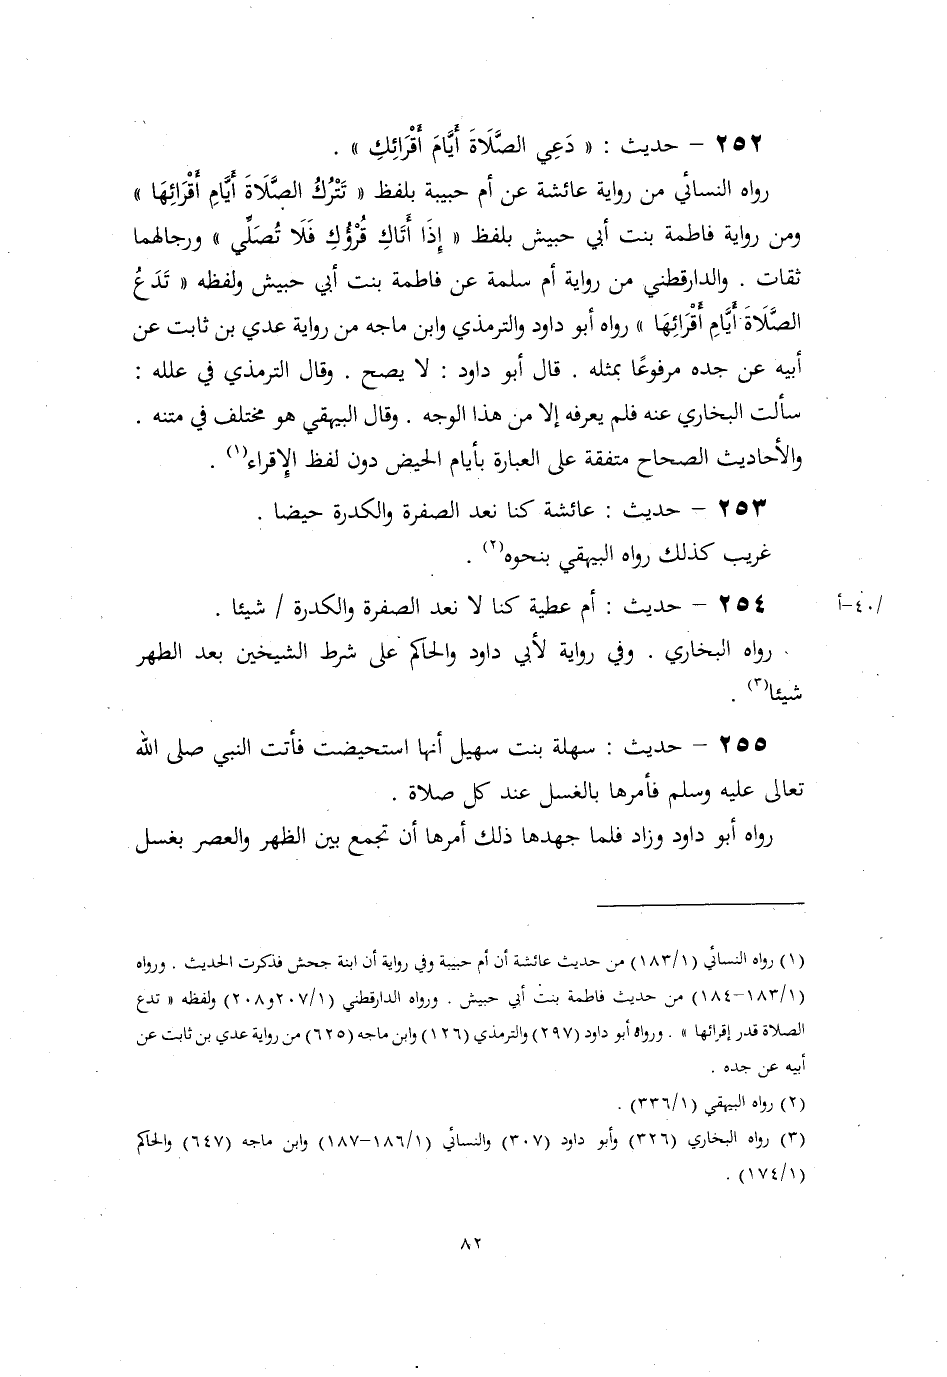 ٢٥٢ – حديث : « دَعِي الصَّلَاةَ أَيَّامَ أَقْرَائِكِ » .
رواه النسائي من رواية عائشة عن أم حبيبة بلفظ « تَتْرُكُ الصَّلَاةَ أَيَّامِ أَقْرَائِهَا »
ومن رواية فاطمة بنت أبي حبيش بلفظ « إِذَا أَتَاكِ قُرْؤُكِ فَلَا تُصَلِّي » ورجالهما
ثقات . والدارقطني من رواية أم سلمة عن فاطمة بنت أبي حبيش ولفظه « تَدَعُ
الصَّلَاةَ أَيَّامِ أَقْرَائِهَا » رواه أبو داود والترمذي وابن ماجه من رواية عدي بن ثابت عن
أبيه عن جده مرفوعًا بمثله . قال أبو داود : لا يصح . وقال الترمذي في علله :
سألت البخاري عنه فلم يعرفه إلا من هذا الوجه . وقال البيهقي هو مختلف في متنه .
والأحاديث الصحاح متفقة على العبارة بأيام الحيض دون لفظ الإقراء(١) .
٢٥٣ – حديث : عائشة كنا نعد الصفرة والكدرة حيضا .
غريب كذلك رواه البيهقي بنحوه(٢) .
٢٥٤ – حديث : أم عطية كنا لا نعد الصفرة والكدرة / شيئا .
/٤٠–أ
رواه البخاري . وفي رواية لأبي داود والحاكم على شرط الشيخين بعد الطهر
شيئا(٣) .
٢٥٥ – حديث : سهلة بنت سهيل أنها استحيضت فأتت النبي صلى الله
تعالى عليه وسلم فأمرها بالغسل عند كل صلاة .
رواه أبو داود وزاد فلما جهدها ذلك أمرها أن تجمع بين الظهر والعصر بغسل
(١) رواه النسائي (١/١٨٣) من حديث عائشة أن أم حبيبة وفي رواية أن ابنة جحش فذكرت الحديث . ورواه
(١/١٨٣–١٨٤) من حديث فاطمة بنت أبي حبيش . ورواه الدارقطني (١/٢٠٧و٢٠٨) ولفظه « تدع
الصلاة قدر إقرائها » . ورواه أبو داود (٢٩٧) والترمذي (١٢٦) وابن ماجه (٦٢٥) من رواية عدي بن ثابت عن
أبيه عن جده .
(٢) رواه البيهقي (١/٣٣٦) .
(٣) رواه البخاري (٣٢٦) وأبو داود (٣٠٧) والنسائي (١/١٨٦–١٨٧) وابن ماجه (٦٤٧) والحاكم
(١/١٧٤) .
٨٢